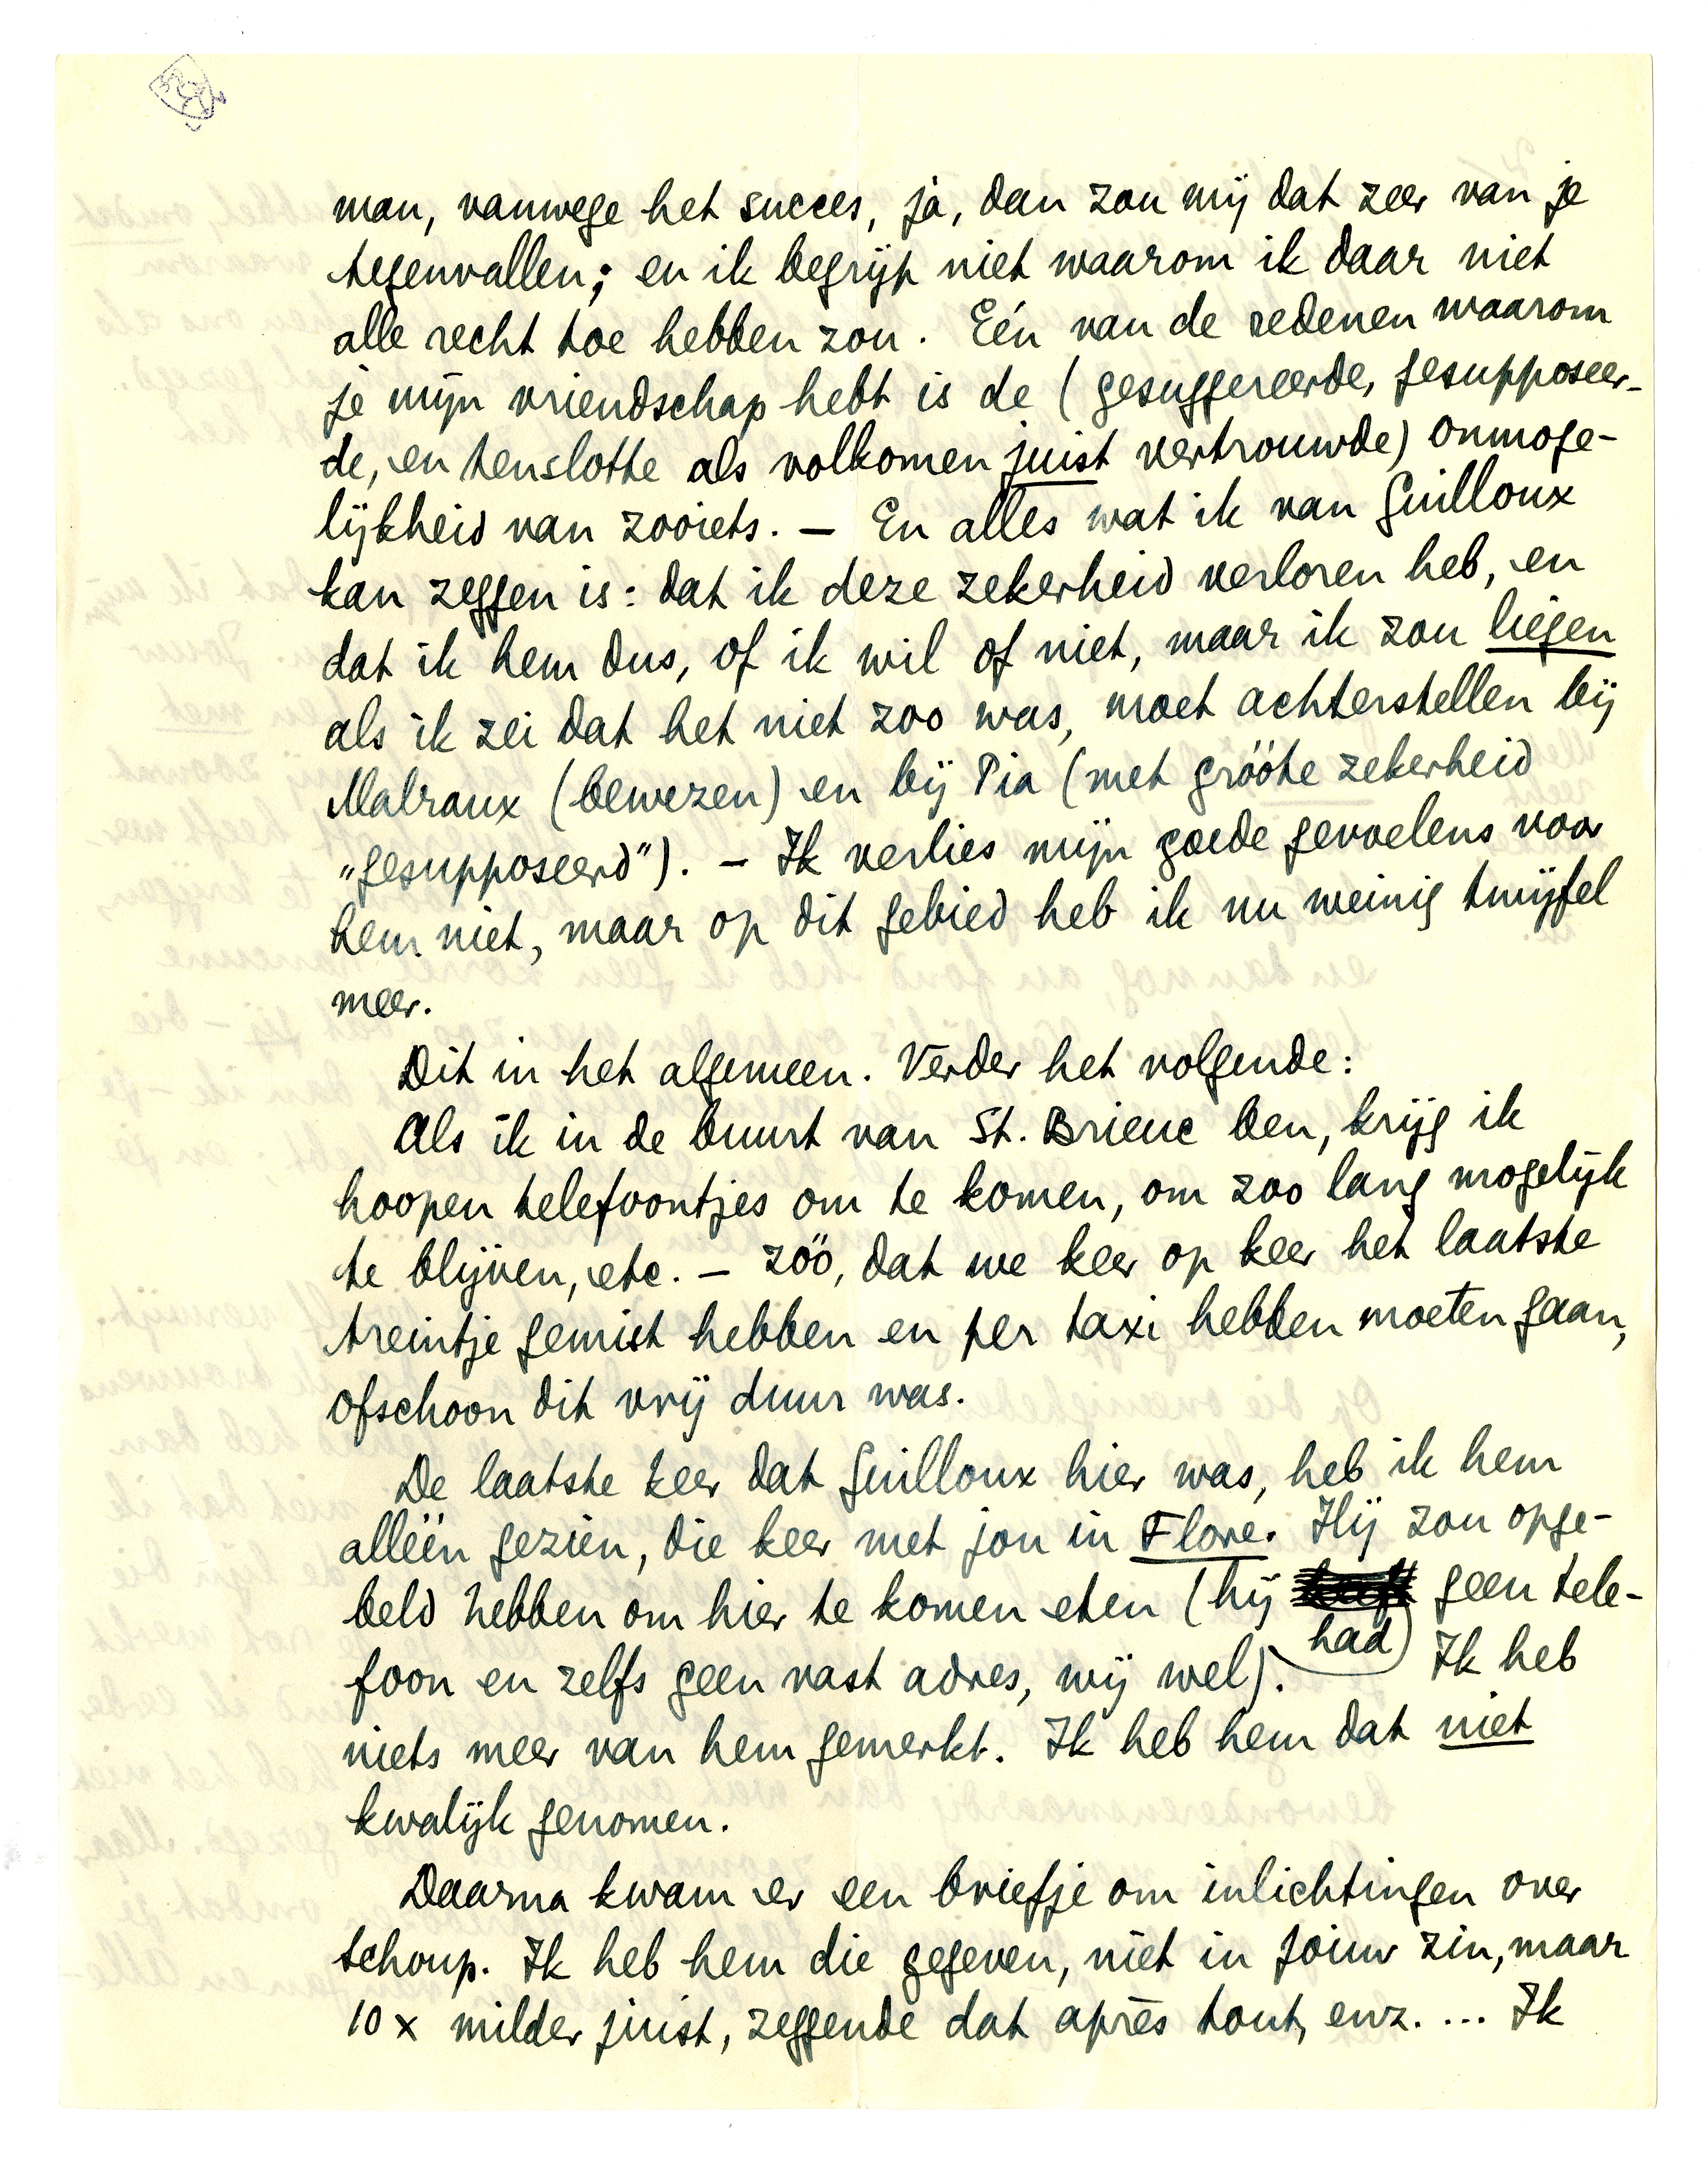 man, vanwege het succes, jà, dan zou mij dat zeer van je
tegenvallen; en ik begrijp niet waarom ik daar niet
alle recht toe hebben zou. Eén van de redenen waarom
je mijn vriendschap hebt is de (gesuggereerde, gesupposeer-
de, en tenslotte als volkomen juist vertrouwde) onmoge-
lijkheid van zooiets. — En alles wat ik van Guilloux
kan zeggen is: dat ik deze zekerheid verloren heb, en
dat ik hem dus, of ik wil of niet, maar ik zou liegen
als ik zei dat het niet zoo was, moet achterstellen bij
Malraux (bewezen) en bij Pia (met gróóte zekerheid
„gesupposeerd"). — Ik verlies mijn goede gevoelens voor
hem niet, maar op dit gebied heb ik nu weinig twijfel
meer.
Dit in het algemeen. Verder het volgende:
Als ik in de buurt van St. Brieuc ben, krijg ik
hoopen telefoontjes om te komen, om zoo lang mogelijk
te blijven, etc. — zóó, dat we keer op keer het laatste
treintje gemist hebben en per taxi hebben moeten gaan,
ofschoon dit vrij duur was.
De laatste keer dat Guilloux hier was, heb ik hem
alléén gezien, die keer met jou in Flore. Hij zou opge-
beld hebben om hier te komen eten (hij had geen tele-
foon en zelfs geen vast adres, wij wel). Ik heb
niets meer van hem gemerkt. Ik heb hem dat niet
kwalijk genomen.
Daarna kwam er een briefje om inlichtingen over
Schoup. Ik heb hem die gegeven, niet in jouw zin, maar
10 x milder juist, zeggende dat après tout, enz. ... Ik